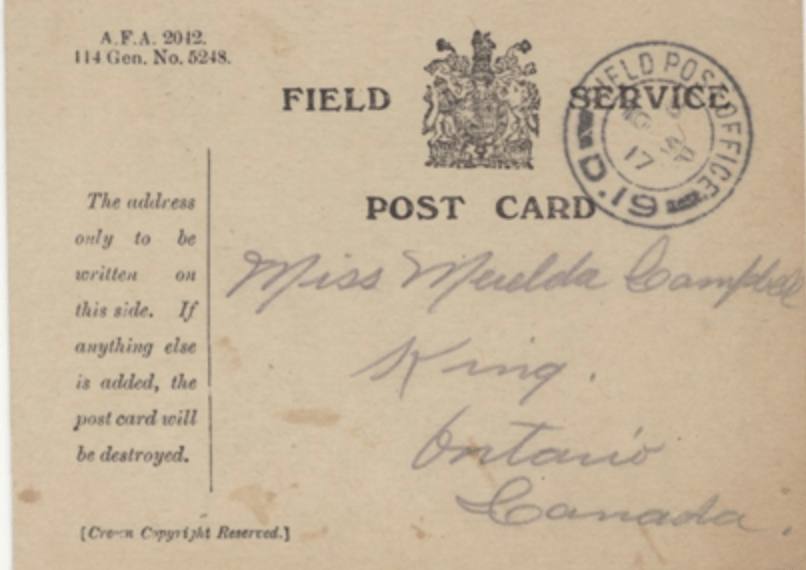 A.F.A. 2042.
114 Gen. No. 5248.
FIELD SERVICE
FIELD POST OFFICE
17
D.19
POST CARD
The address
only to be
written on
this side. If
anything else
is added, the
post card will
be destroyed.
Miss Campbell
King.
Ontario
Canada.
[Crown Copyright Reserved.]